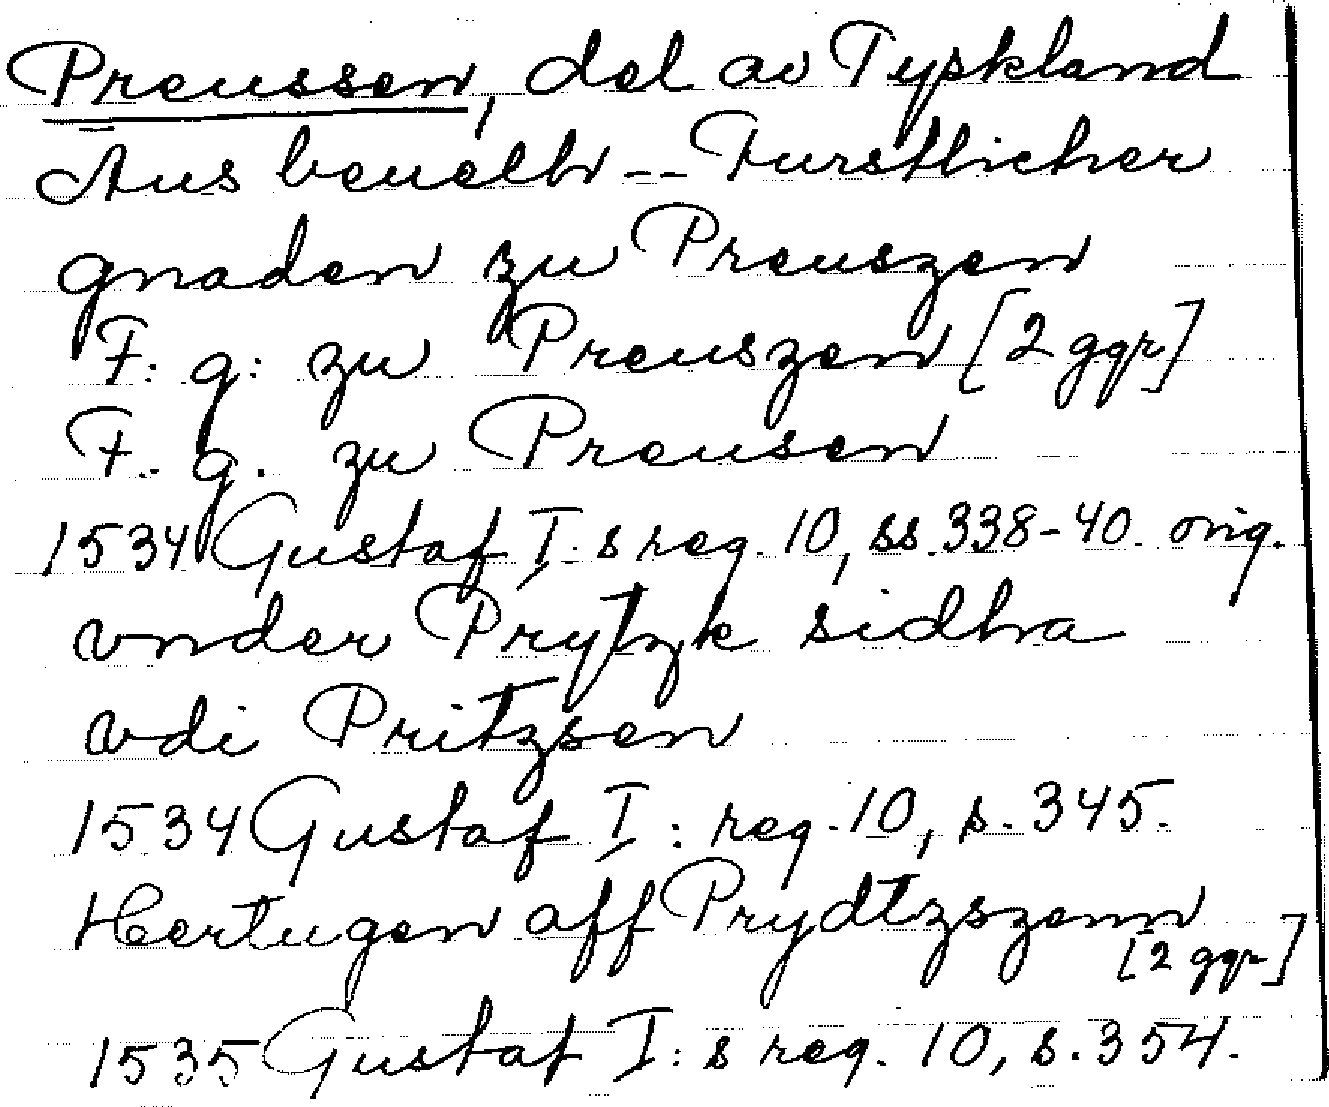 Preussen, del av Tyskland
Aus beuelh -- Furstlicher
gnaden zu Preuszen
F: g: zu Preuszen [2 ggr]
F. g. zu Preusen
1534 Gustaf I: s reg. 10, ss. 338-40. orig.
vnder Prytzk sidha
vdi Pritzsen
1534 Gustaf I: reg. 10, s. 345.
Hertugen aff Prydtzszenn
[2 ggr]
1535 Gustaf I: s reg. 10, s. 354.